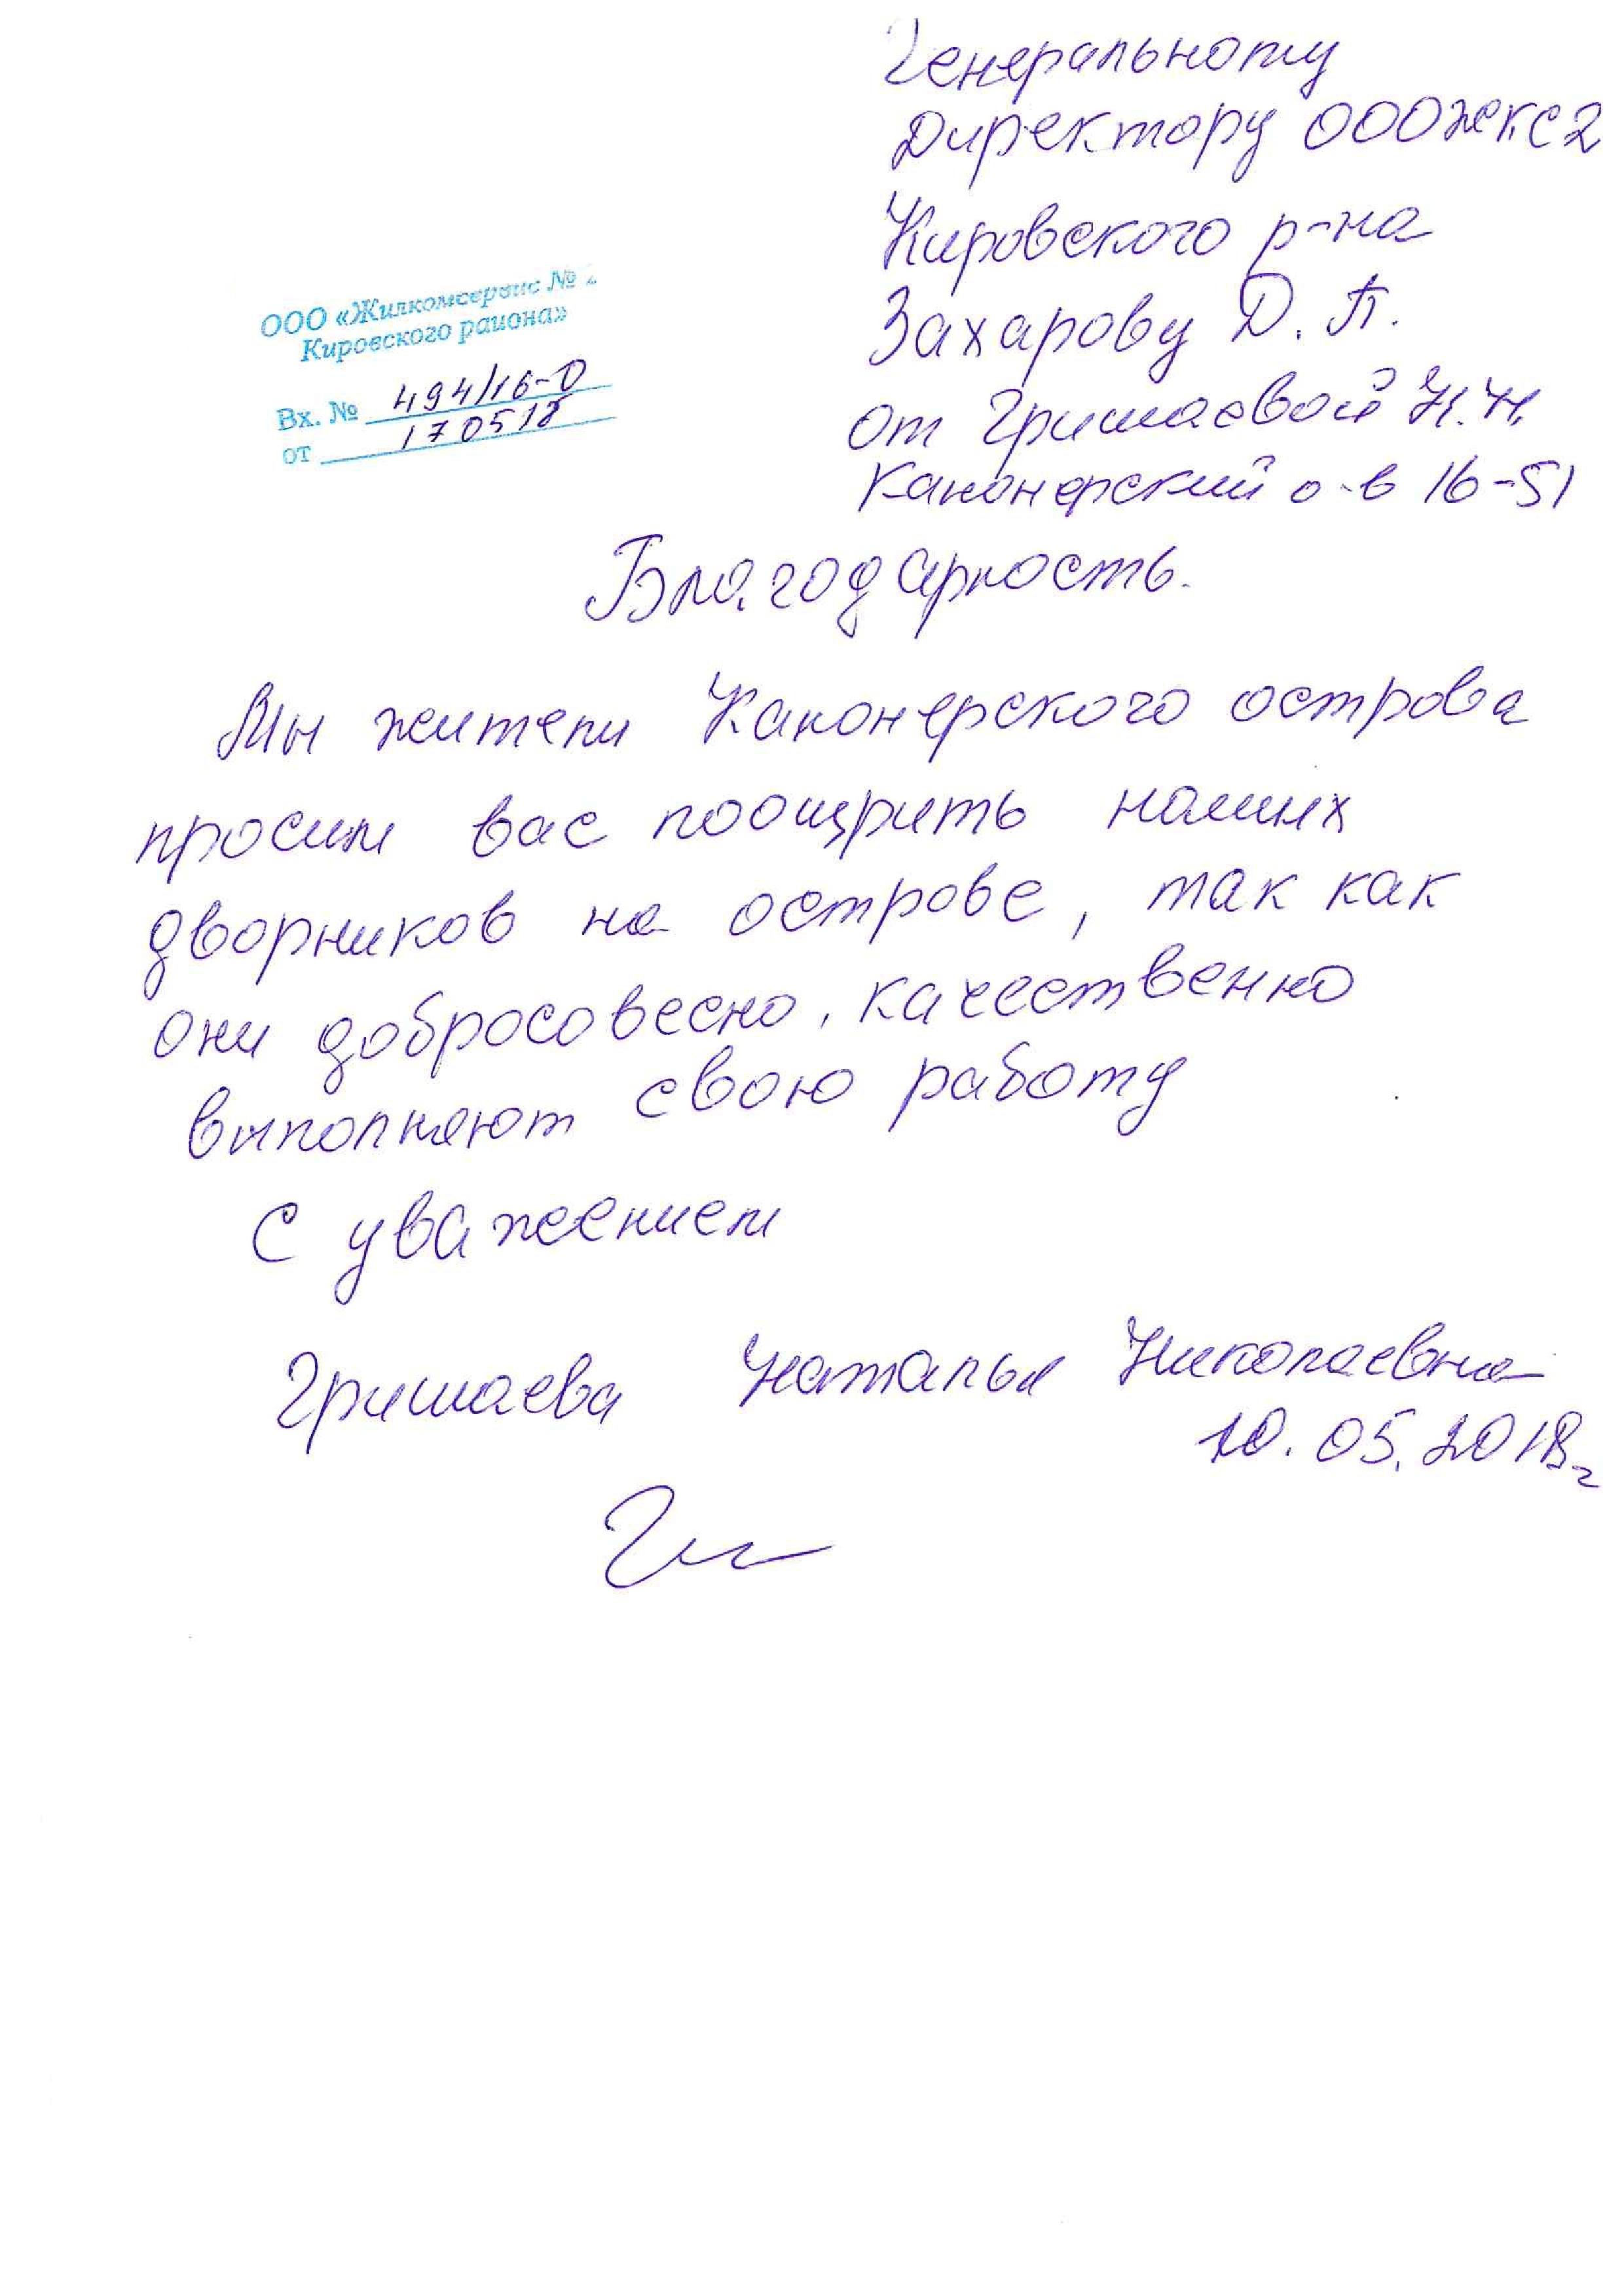 Генеральному
Директору ООО ЖКС 2
Кировского р-на
Захарову Д. П.
от Гришаевой Н. Н.
Канонерский о-в 16-51
ООО «Жилкомсервис № 2
Кировского района»
Вх. № 494/16-0
от 170518
Благодарность.
Мы жители Канонерского острова
просим вас поощрить наших
дворников на острове, так как
они добросовесно, качественно
выполняют свою работу
С уважением
Гришаева Наталья Николаевна
10.05.2018г